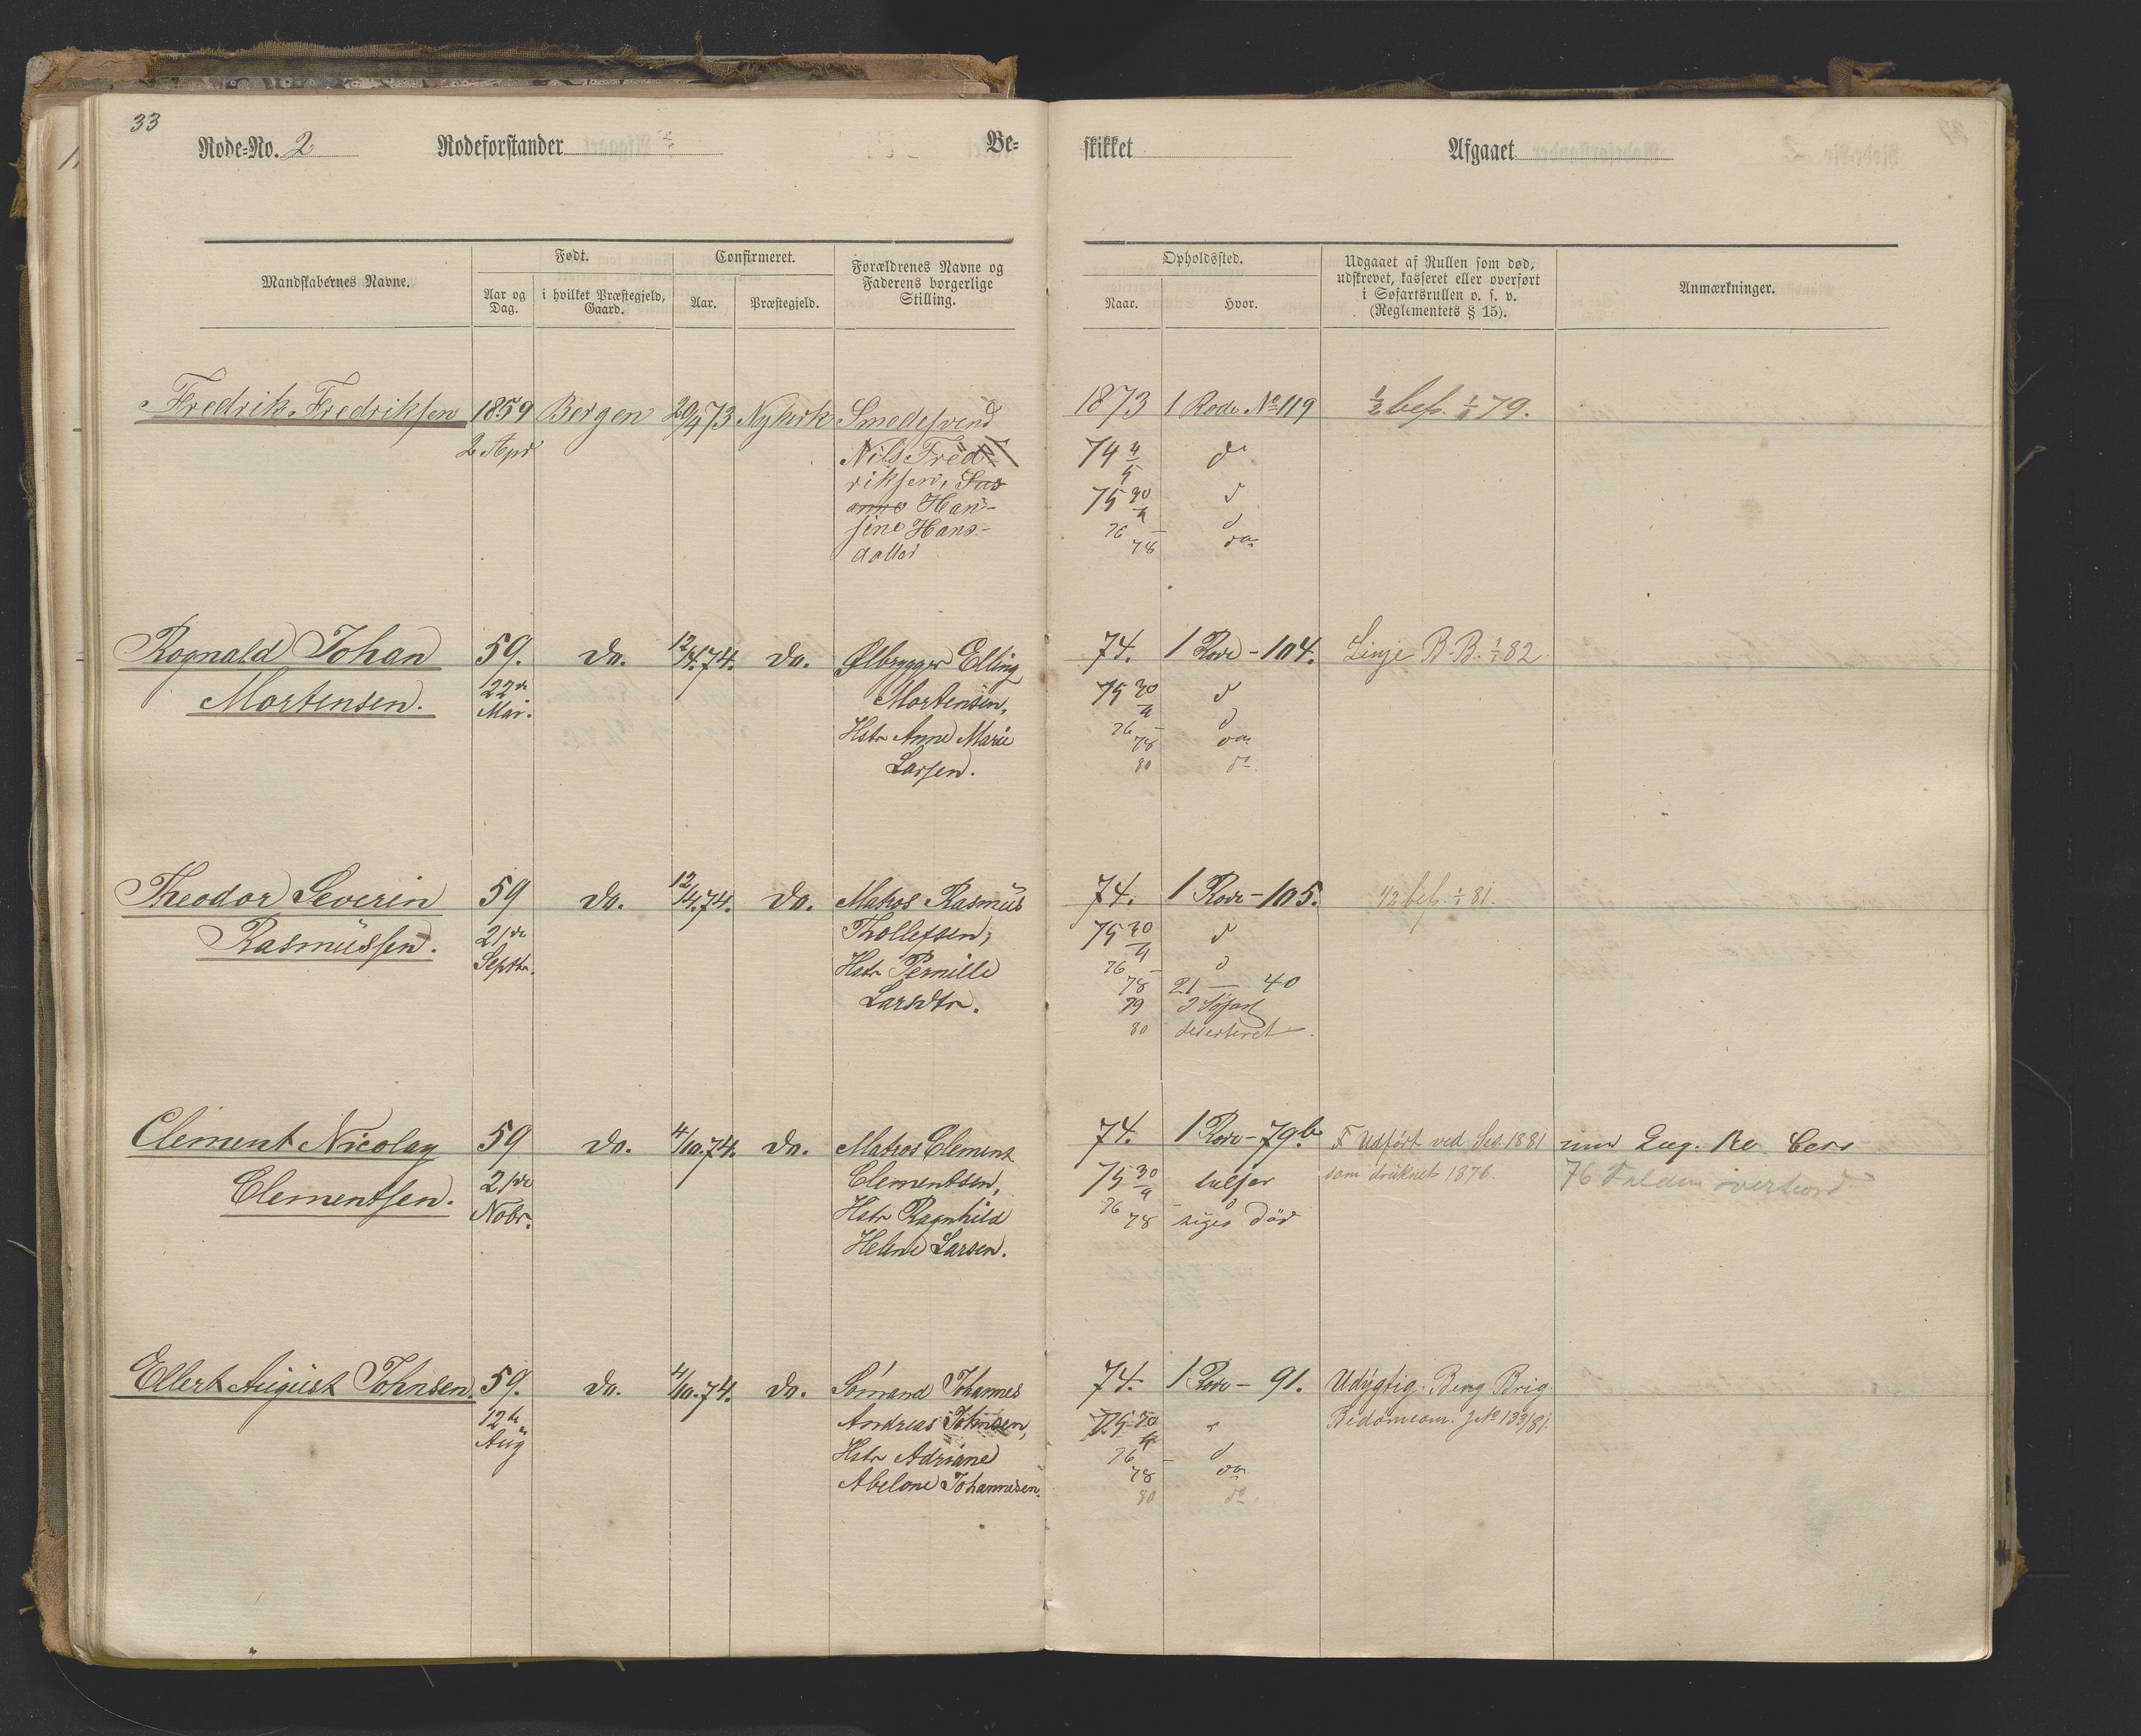 33
Rode-No. 2 Rodeforstander Be-
skikket Afgaaet
Mandskabernes Navne. Født. Confirmeret. Forældrenes Navne og Faderens borgerlige Stilling.
Aar og Dag. i hvilket Præstegjeld, Gaard. Aar. Præstegjeld.
Opholdssted. Udgaaet af Rullen som død, udskrevet, kasseret eller overført i Søfartsrullen o. s. v. (Reglementets § 15). Anmærkninger.
Naar. Hvor.
Fredrik Fredriksen 1859 Bergen 20/4 73 Nykirk Smedesvend 1873 1 Rode No 119 1/2 bef. 1/1 79.
2 Apr Nils Fred 74 4/5 do
riksen, Sus 75 30/4 d
anne Han- 76 - d
sine Hans- 78 do
datter
Rognald Johan 59. do. 12/4.74. do. Ølbrygger Elling 74. 1 Rode - 104. Linje B.B. 1/1 82
Mortensen. 22de Mortensen, 75 30/4 d
Mai. Hstr Anne Marie 76 - d
78 do
Larsen. 80 do
Theodor Severin 59 do. 12/4.74. do. Matros Rasmus 74. 1 Rode - 105. 1/2 bef. 1/1 81.
Rasmussen. 21de Thollefsen, 75 30/4 d
Septbr. Hstr Pernille 76 - d
78 21 - 40
Larsdtr. 79 I Søfart
80 deserteret
Clement Nicolay 59 do. 4/10.74. do. Matros Clement 74. 1 Rode - 79b. F Udført ved Ses. 1881
Clementsen. 21de Clementsen, 75 30/4 tilsøes som druknet 1876. 76 Falden overbord
Nobr. Hstr Ragnhild 76 - d
78 siges død
Helene Larsen.
Ellert August Johnsen. 59. do. 4/10.74. do. Sømand Johannes 74. 1 Rode - 91. Udygtig. Berg Brig.
12te Andreas Johnsen, 75 30/4 d Bedømcom. J No 133/81.
Aug Hstr Adriane 76 - d
78 do
Abelone Johannesen. 80 do